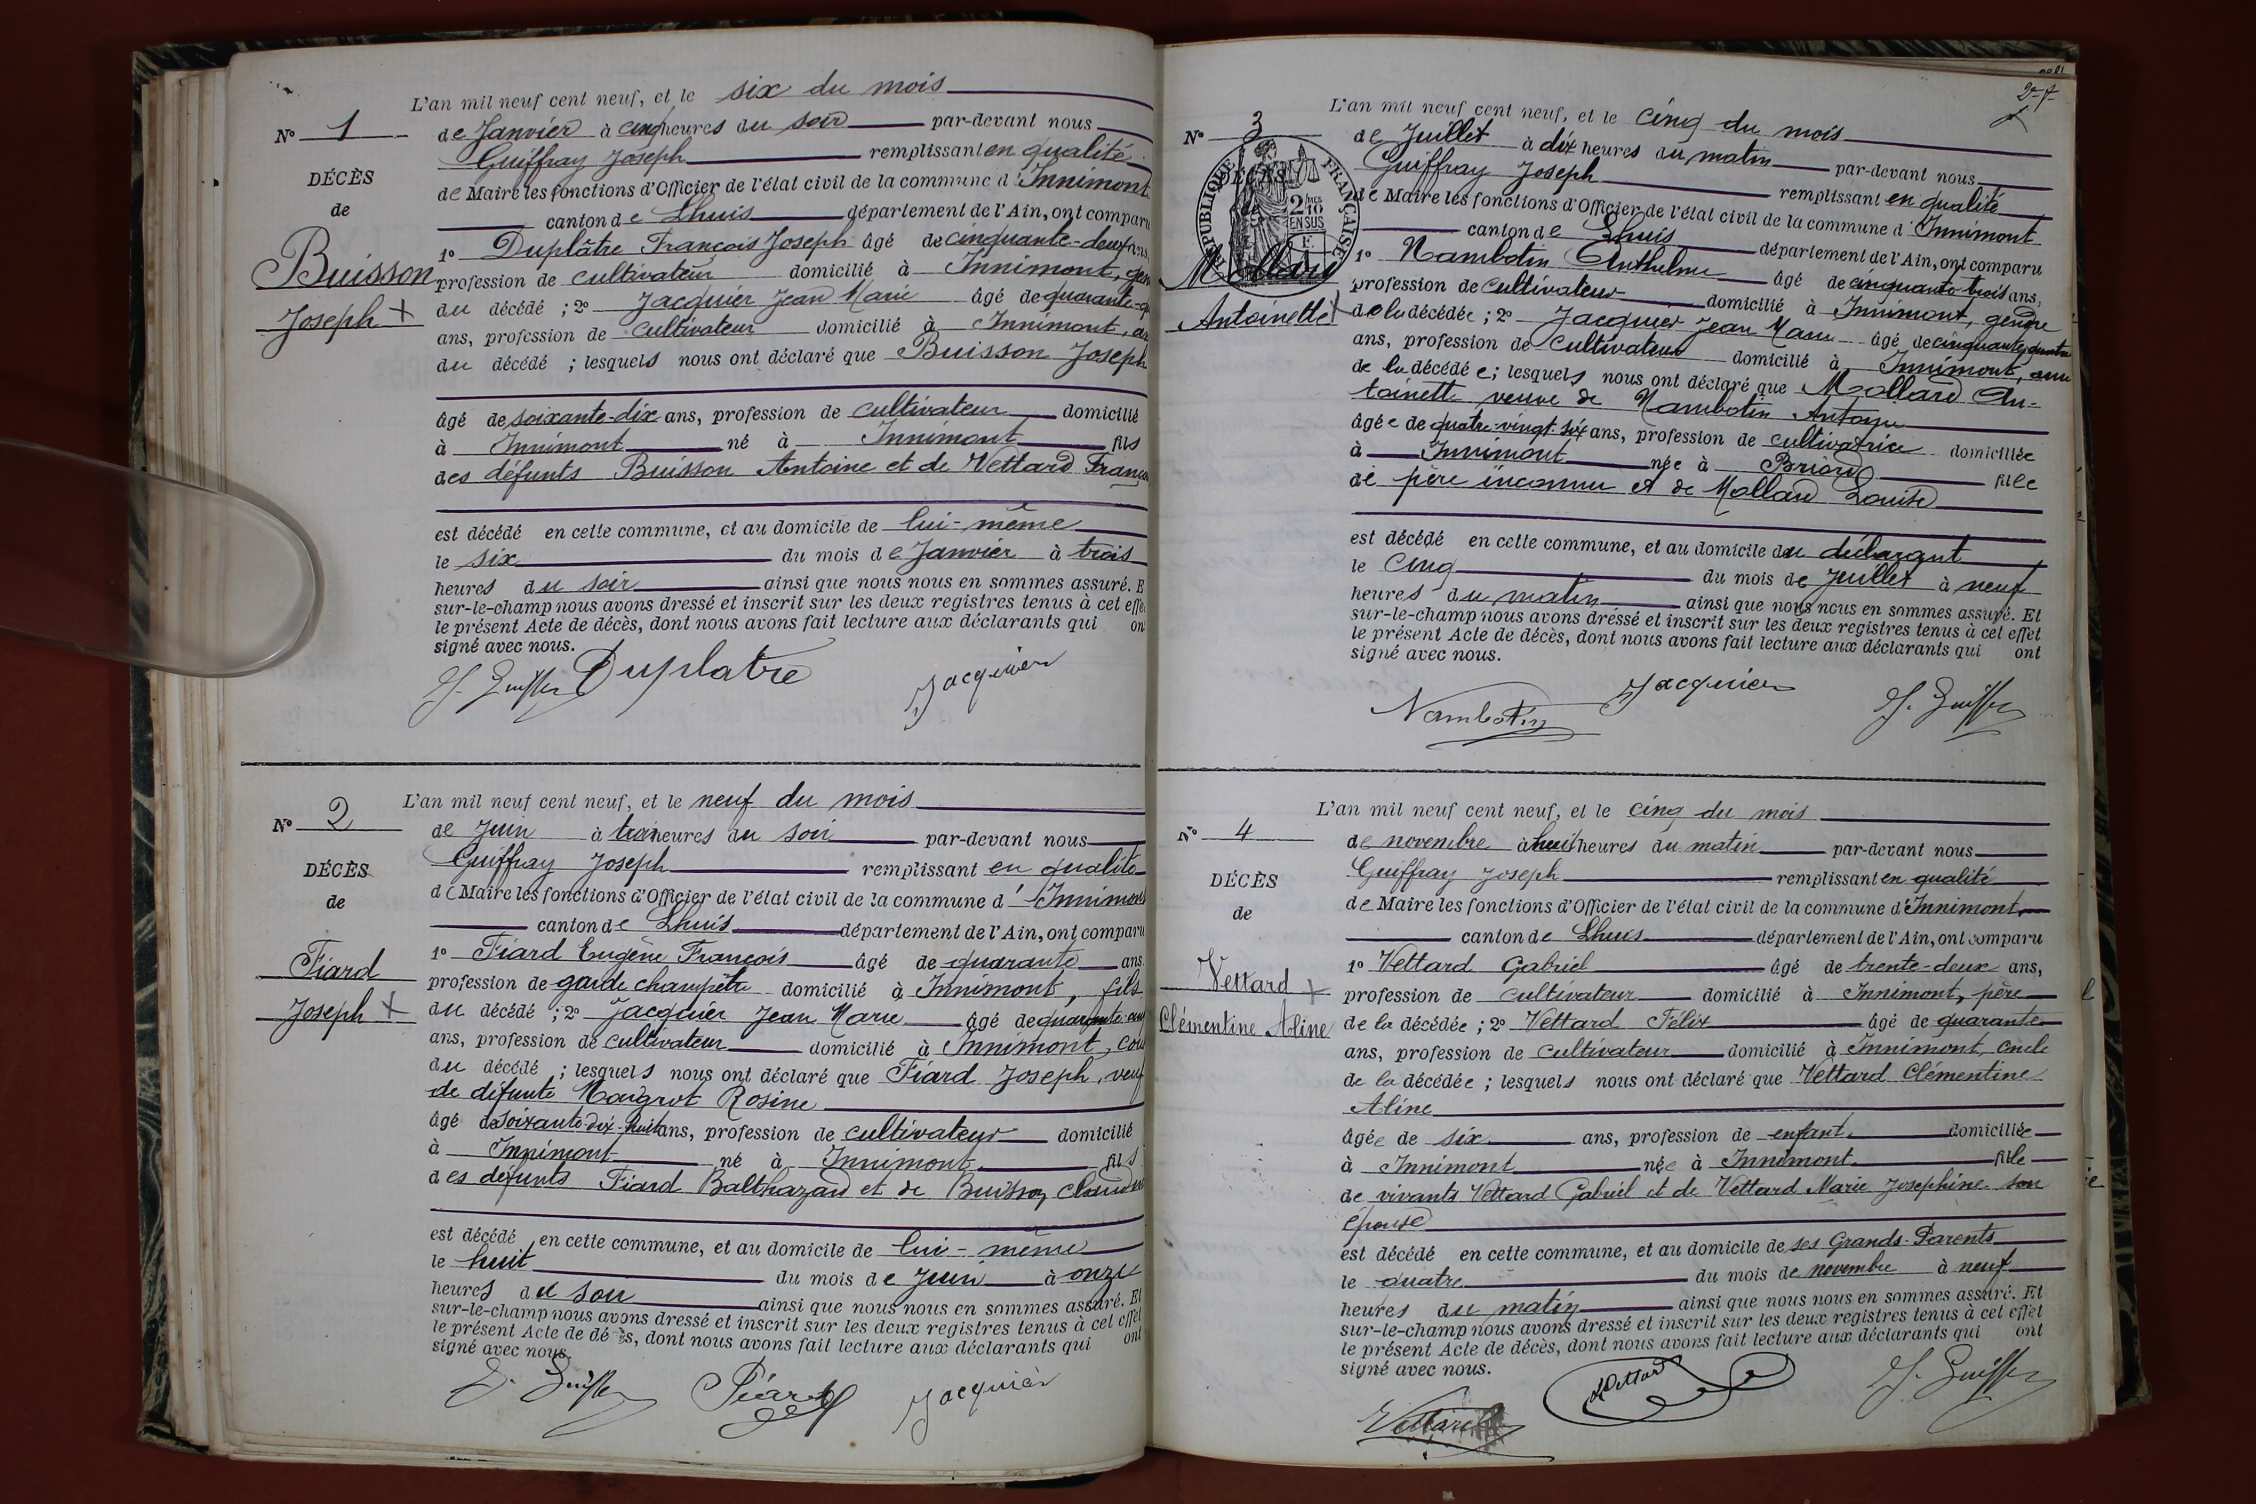 L'an mil neuf cent neuf, et le six du mois
N° 1
de Janvier à cinq heures du soir par-devant nous
Guiffray Joseph remplissant en qualité
DÉCÈS
de Maire les fonctions d'Officier de l'état civil de la commune d'Innimont
de
canton de Lhuis département de l'Ain, ont comparu
1° Duplâtre François Joseph âgé de cinquante-deux ans,
Buisson
profession de cultivateur domicilié à Innimont,
du décédé ; 2° Jacquier Jean Marie âgé de quarante-
Joseph +
ans, profession de cultivateur domicilié à Innimont,
du décédé ; lesquels nous ont déclaré que Buisson Joseph
âgé de soixante-dix ans, profession de cultivateur domicilié
à Innimont né à Innimont fils
des défunts Buisson Antoine et de Vettard
est décédé en cette commune, et au domicile de lui-même
le six du mois de Janvier à trois
heures du soir ainsi que nous nous en sommes assuré. E
sur-le-champ nous avons dressé et inscrit sur les deux registres tenus à cet effe
le présent Acte de décès, dont nous avons fait lecture aux déclarants qui on
signé avec nous.
Duplatre Jacquier
L'an mil neuf cent neuf, et le neuf du mois
N° 2
de Juin à trois heures du soir par-devant nous
Guiffray Joseph remplissant en qualité
DÉCÈS
de Maire les fonctions d'Officier de l'état civil de la commune d'Innimont
de
canton de Lhuis département de l'Ain, ont comparu
1° Fiard Eugène François âgé de quarante ans
Fiard
profession de garde champêtre domicilié à Innimont, fils
Joseph +
du décédé ; 2° Jacquier Jean Marie âgé de quarante-
ans, profession de cultivateur domicilié à Innimont,
du décédé ; lesquels nous ont déclaré que Fiard Joseph, veuf
de défunte Maigrot Rosine
âgé de soixante-dix-huit ans, profession de cultivateur domicilié
à Innimont né à Innimont fils
des défunts Fiard Balthazard et de Buisson
est décédé en cette commune, et au domicile de lui-même
le huit du mois de Juin à onze
heures du soir ainsi que nous nous en sommes assuré. Et
sur-le-champ nous avons dressé et inscrit sur les deux registres tenus à cet effet
le présent Acte de décès, dont nous avons fait lecture aux déclarants qui ont
signé avec nous.
Fiard Jacquier
L'an mil neuf cent neuf, et le cinq du mois
N° 3
de Juillet à dix heures du matin par-devant nous
Guiffray Joseph remplissant en qualité
DÉCÈS
RÉPUBLIQUE FRANÇAISE
2/10 EN SUS
de Maire les fonctions d'Officier de l'état civil de la commune d'Innimont
canton de Lhuis département de l'Ain, ont comparu
1° Nambotin Anthelme âgé de cinquante trois ans,
Mollard
profession de cultivateur domicilié à Innimont, gendre
Antoinette +
de la décédée ; 2° Jacquier Jean Marie âgé de
ans, profession de cultivateur domicilié à Innimont, ami
de la décédée ; lesquels nous ont déclaré que Mollard An-
toinette veuve de Nambotin Antoine
âgée de quatre-vingt-six ans, profession de cultivatrice domiciliée
à Innimont née à Briord fille
de père inconnu et de Mollard Louise
est décédé en cette commune, et au domicile du déclarant
le cinq du mois de Juillet à neuf
heures du matin ainsi que nous nous en sommes assuré. Et
sur-le-champ nous avons dressé et inscrit sur les deux registres tenus à cet effet
le présent Acte de décès, dont nous avons fait lecture aux déclarants qui ont
signé avec nous.
Nambotin Jacquier
L'an mil neuf cent neuf, et le cinq du mois
N° 4
de novembre à huit heures du matin par-devant nous
Guiffray Joseph remplissant en qualité
DÉCÈS
de Maire les fonctions d'Officier de l'état civil de la commune d'Innimont
de
canton de Lhuis département de l'Ain, ont comparu
1° Vettard Gabriel âgé de trente-deux ans,
Vettard +
profession de cultivateur domicilié à Innimont, père
Clémentine Aline
de la décédée ; 2° Vettard Félix âgé de quarante
ans, profession de cultivateur domicilié à Innimont, oncle
de la décédée ; lesquels nous ont déclaré que Vettard Clémentine
Aline
âgée de six ans, profession de enfant domiciliée
à Innimont née à Innimont fille
de vivants Vettard Gabriel et de Vettard Marie Josephine son
épouse
est décédé en cette commune, et au domicile de ses Grands-Parents
le quatre du mois de novembre à neuf
heures du matin ainsi que nous nous en sommes assuré. Et
sur-le-champ nous avons dressé et inscrit sur les deux registres tenus à cet effet
le présent Acte de décès, dont nous avons fait lecture aux déclarants qui ont
signé avec nous.
Vettard
Vettard